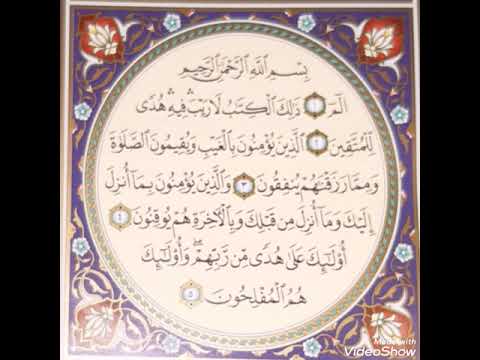 بِسْمِ ٱللَّهِ ٱلرَّحْمَٰنِ ٱلرَّحِيمِ
الٓمٓ ١ ذَٰلِكَ ٱلْكِتَٰبُ لَا رَيْبَ ۛ فِيهِ ۛ هُدًى
لِّلْمُتَّقِينَ ٢ ٱلَّذِينَ يُؤْمِنُونَ بِٱلْغَيْبِ وَيُقِيمُونَ ٱلصَّلَوٰةَ
وَمِمَّا رَزَقْنَٰهُمْ يُنفِقُونَ ٣ وَٱلَّذِينَ يُؤْمِنُونَ بِمَآ أُنزِلَ
إِلَيْكَ وَمَآ أُنزِلَ مِن قَبْلِكَ وَبِٱلْءَاخِرَةِ هُمْ يُوقِنُونَ ٤
أُو۟لَٰٓئِكَ عَلَىٰ هُدًى مِّن رَّبِّهِمْ ۖ وَأُو۟لَٰٓئِكَ
هُمُ ٱلْمُفْلِحُونَ ٥
Made with
VideoShow